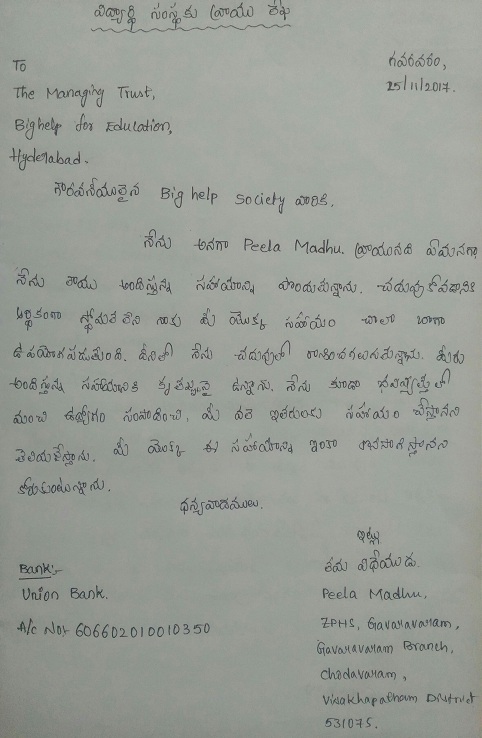 విద్యార్థి సంస్థకు వ్రాయు లేఖ
గవరవరం,
25/11/2017.
To
The Managing Trust,
Bighelp for Education,
Hyderabad.
గౌరవనీయులైన Big help society వారికి,
నేను అనగా Peela Madhu. వ్రాయునది ఏమనగా
నేను తాము అందిస్తున్న సహాయాన్ని పొందుతున్నాను. చదువుకోవడానికి
ఆర్థికంగా స్తోమత లేని నాకు మీ యొక్క సహాయం చాలా బాగా
ఉపయోగపడుతుంది. దీనితో నేను చదువులో రాణించగలుగుతున్నాను. మీరు
అందిస్తున్న సహాయానికి కృతజ్ఞుడై ఉన్నాను. నేను కూడా భవిష్యత్తులో
మంచి ఉద్యోగం సంపాదించి, మీ వలె ఇతరులకు సహాయం చేస్తానని
తెలియజేస్తాను. మీ యొక్క ఈ సహాయాన్ని ఇంకా కొనసాగిస్తానని
కోరుకుంటున్నాను.
ధన్యవాదములు.
ఇట్లు
తమ విధేయుడు.
Peela Madhu,
ZPHS, Gavaravaram,
Gavaravaram Branch,
Chodavaram,
Visakhapatnam District
531075.
Bank:-
Union Bank.
A/c No:- 606602010010350